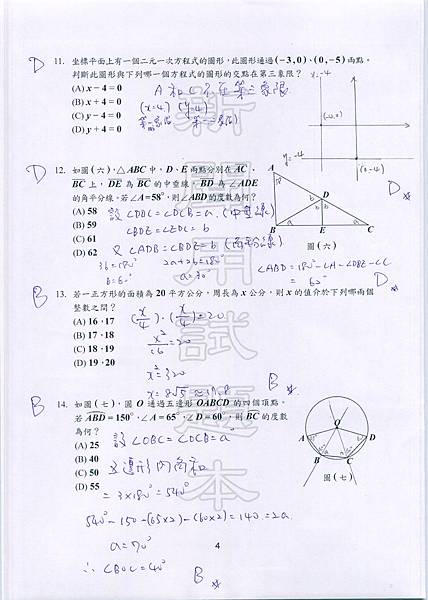 D
11. 坐標平面上有一個二元一次方程式的圖形，此圖形通過(-3,0)、(0,-5)兩點。
判斷此圖形與下列哪一個方程式的圖形的交點在第三象限？
(A) x - 4 = 0
(B) x + 4 = 0
(C) y - 4 = 0
(D) y + 4 = 0
A 和 C 不在第三象限
(x=4) (y=4)
x=-4
(-4,0)
y=-4
(0,-4)
D
12. 如圖(六)，△ABC 中，D、E 兩點分別在 AC、
BC 上，DE 為 BC 的中垂線，BD 為 ∠ADE
的角平分線。若∠A=58°，則∠ABD 的度數為何？
(A) 58
(B) 59
(C) 61
(D) 62
設 ∠DBC = ∠DCB = a (中垂線)
∠BDE = ∠EDC = b
又 ∠ADB = ∠BDE = b (角平分線)
3b = 180°
b = 60°
2a+2b = 180°
a = 30°
∠ABD = 180° - ∠A - ∠DBE - ∠C
= 62°
D
A
58°
D
b
b
b
a
a
B
E
C
圖(六)
B
13. 若一正方形的面積為 20 平方公分，周長為 x 公分，則 x 的值介於下列哪兩個
整數之間？
(A) 16，17
(B) 17，18
(C) 18，19
(D) 19，20
(x/4)·(x/4) = 20
x²/16 = 20
x² = 320
x = 8√5 ≈ 17.8
B
B
14. 如圖(七)，圓 O 通過五邊形 OABCD 的四個頂點。
若 ABD = 150°，∠A = 65°，∠D = 60°，則 BC 的度數
為何？
(A) 25
(B) 40
(C) 50
(D) 55
設 ∠OBC = ∠OCB = a°
五邊形內角和
= 3×180° = 540°
540° - 150 - (65×2) - (60×2) = 140 = 2a
a = 70°
∴ ∠BOC = 40°
B
O
A
D
B
C
圖(七)
4
新聞用試題本